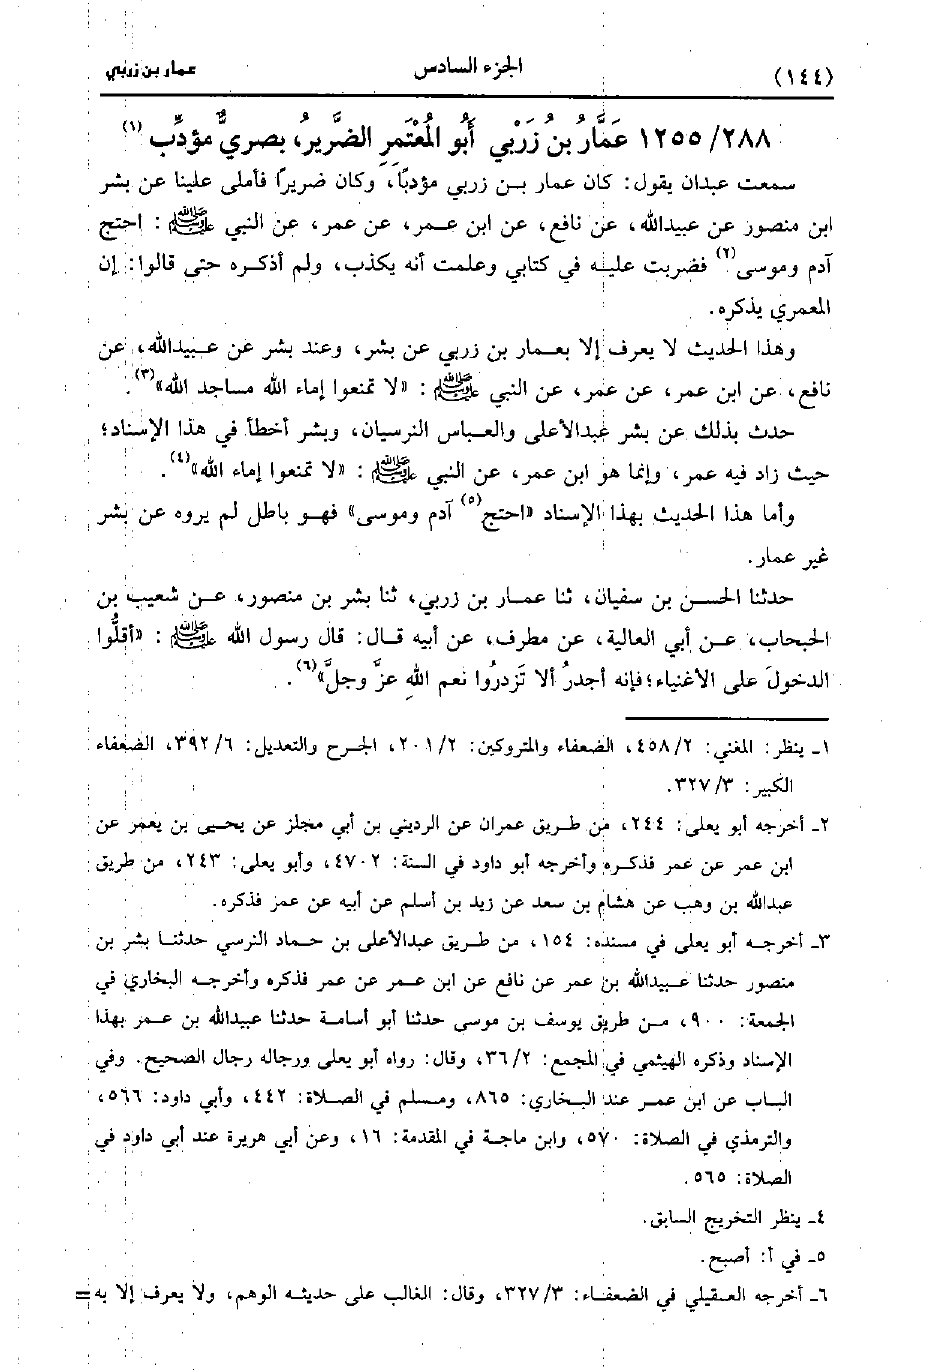 (١٤٤) الجزء السادس عمار بن زربي
١٢٥٥/٢٨٨ عَمَّارُ بنُ زَرْبي أَبُو المُعْتَمَرِ الضَّريرُ، بصريٌّ مؤدِّب(١)
سمعت عبدان يقول: كان عمار بن زربي مؤدبًا، وكان ضريرًا فأملى علينا عن بشر
ابن منصور عن عبيدالله، عن نافع، عن ابن عمر، عن عمر، عن النبي ﷺ : احتج
آدم وموسى(٢) فضربت عليه في كتابي وعلمت أنه يكذب، ولم أذكره حتى قالوا: إن
المعمري يذكره.
وهذا الحديث لا يعرف إلا بعمار بن زربي عن بشر، وعند بشر عن عبيدالله، عن
نافع، عن ابن عمر، عن عمر، عن النبي ﷺ : «لا تمنعوا إماء الله مساجد الله»(٣).
حدث بذلك عن بشر عبدالأعلى والعباس النرسيان، وبشر أخطأ في هذا الإسناد؛
حيث زاد فيه عمر، وإنما هو ابن عمر، عن النبي ﷺ : «لا تمنعوا إماء الله»(٤).
وأما هذا الحديث بهذا الإسناد «احتج(٥) آدم وموسى» فهو باطل لم يروه عن بشر
غير عمار.
حدثنا الحسن بن سفيان، ثنا عمار بن زربي، ثنا بشر بن منصور، عن شعيب بن
الحبحاب، عن أبي العالية، عن مطرف، عن أبيه قال: قال رسول الله ﷺ : «أقلُّوا
الدخولَ على الأغنياء؛ فإنه أجدرُ ألا تزدرُوا نعم اللهِ عزَّ وجلَّ»(٦).
١ـ ينظر: المغني: ٤٥٨/٢، الضعفاء والمتروكين: ٢٠١/٢، الجرح والتعديل: ٣٩٢/٦، الضعفاء
الكبير: ٣٢٧/٣.
٢ـ أخرجه أبو يعلى: ٢٤٤، من طريق عمران عن الرديني بن أبي مجلز عن يحيى بن يعمر عن
ابن عمر عن عمر فذكره وأخرجه أبو داود في السنة: ٤٧٠٢، وأبو يعلى: ٢٤٣، من طريق
عبدالله بن وهب عن هشام بن سعد عن زيد بن أسلم عن أبيه عن عمر فذكره.
٣ـ أخرجه أبو يعلى في مسنده: ١٥٤، من طريق عبدالأعلى بن حماد النرسي حدثنا بشر بن
منصور حدثنا عبيدالله بن عمر عن نافع عن ابن عمر عن عمر فذكره وأخرجه البخاري في
الجمعة: ٩٠٠، من طريق يوسف بن موسى حدثنا أبو أسامة حدثنا عبيدالله بن عمر بهذا
الإسناد وذكره الهيثمي في المجمع: ٣٦/٢، وقال: رواه أبو يعلى ورجاله رجال الصحيح. وفي
الباب عن ابن عمر عند البخاري: ٨٦٥، ومسلم في الصلاة: ٤٤٢، وأبي داود: ٥٦٦،
والترمذي في الصلاة: ٥٧٠، وابن ماجة في المقدمة: ١٦، وعن أبي هريرة عند أبي داود في
الصلاة: ٥٦٥.
٤ـ ينظر التخريج السابق.
٥ـ في أ: أصبح.
٦ـ أخرجه العقيلي في الضعفاء: ٣٢٧/٣، وقال: الغالب على حديثه الوهم، ولا يعرف إلا به =